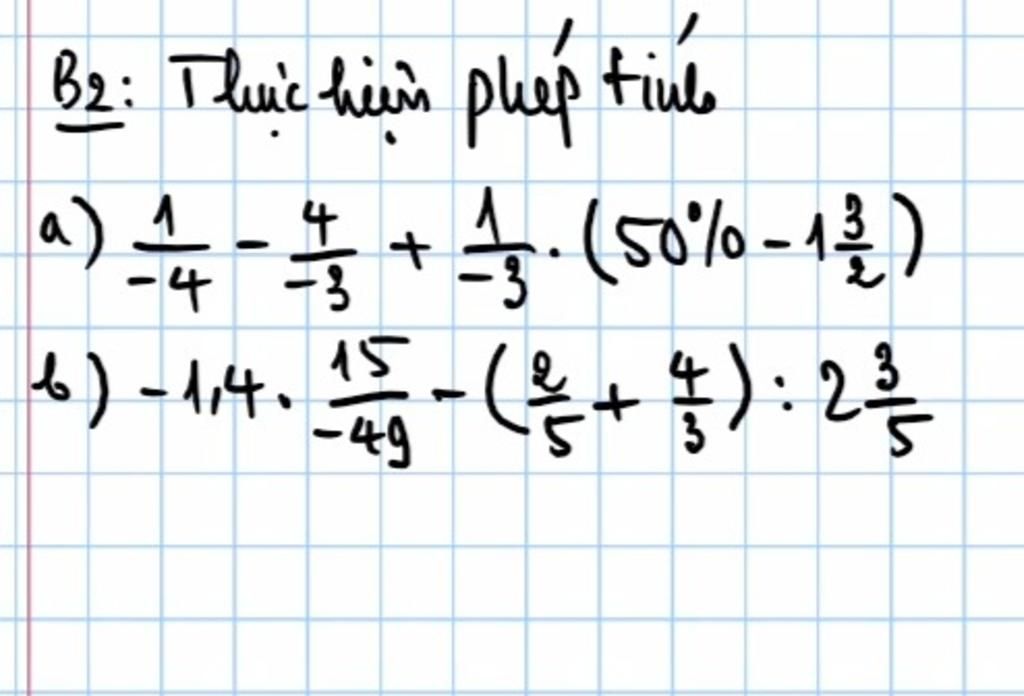 B2: Thực hiện phép tính
a) 1/-4 - 4/-3 + 1/-3 . (50% - 1 3/2)
b) -1,4 . 15/-49 - (2/5 + 4/3) : 2 3/5